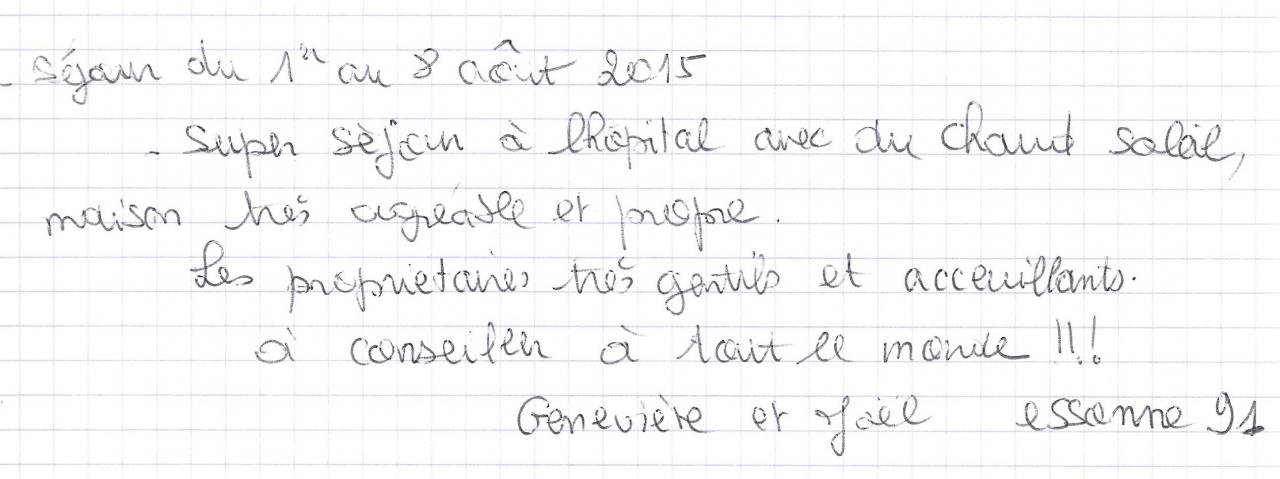 - Séjour du 1er au 8 août 2015
- Super sèjour à lhôpital avec du chaud soleil,
maison très agréable et propre.
Les proprietaires très gentils et acceuillants.
à conseiller à tout le monde !!!
Geneviève et Joël essonne 91